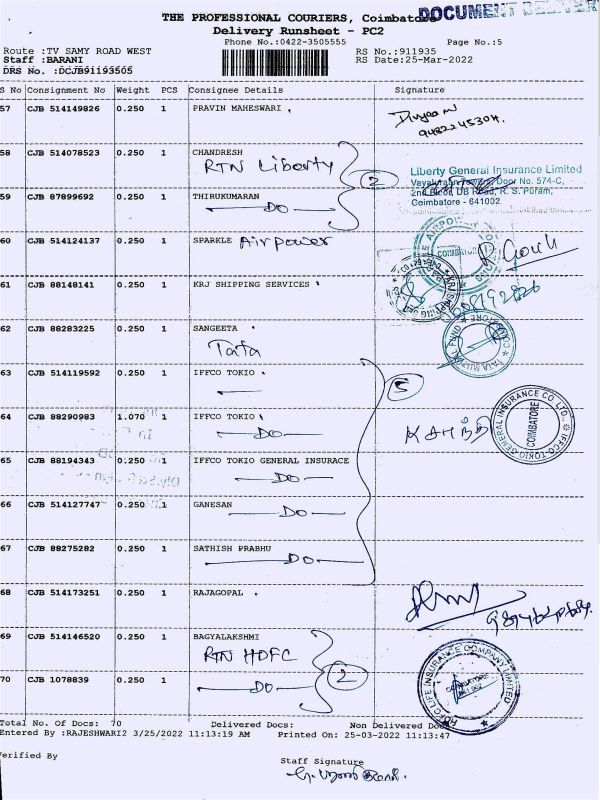 DOCUMENT DELIVERY
THE PROFESSIONAL COURIERS, Coimbatore
Delivery Runsheet - PC2
Phone No.:0422-3505555
Page No.:5
Route :TV SAMY ROAD WEST
RS No.:911935
Staff :BARANI
RS Date:25-Mar-2022
DRS No. :DCJB91193505
S No Consignment No Weight PCS Consignee Details Signature
57 CJB 514149826 0.250 1 PRAVIN MAHESWARI
58 CJB 514078523 0.250 1 CHANDRESH
RTN Liberty
2
Liberty General Insurance Limited
Door No. 574-C,
2nd Floor, DB Road, R. S. Puram,
Coimbatore - 641002
59 CJB 87899692 0.250 1 THIRUKUMARAN
DO
60 CJB 514124137 0.250 1 SPARKLE Airpower
61 CJB 88148141 0.250 1 KRJ SHIPPING SERVICES
62 CJB 88283225 0.250 1 SANGEETA
Tata
63 CJB 514119592 0.250 1 IFFCO TOKIO
5
64 CJB 88290983 1.070 1 IFFCO TOKIO
DO
IFFCO TOKIO GENERAL INSURANCE CO. LTD.
COIMBATORE
65 CJB 88194343 0.250 1 IFFCO TOKIO GENERAL INSURACE
DO
66 CJB 514127747 0.250 1 GANESAN
DO
67 CJB 88275282 0.250 1 SATHISH PRABHU
DO
68 CJB 514173251 0.250 1 RAJAGOPAL
69 CJB 514146520 0.250 1 BAGYALAKSHMI
RTN HDFC
2
HDFC LIFE INSURANCE COMPANY LIMITED
70 CJB 1078839 0.250 1
DO
Total No. Of Docs: 70 Delivered Docs: Non Delivered Docs
Entered By :RAJESHWARI2 3/25/2022 11:13:19 AM Printed On: 25-03-2022 11:13:47
Verified By
Staff Signature